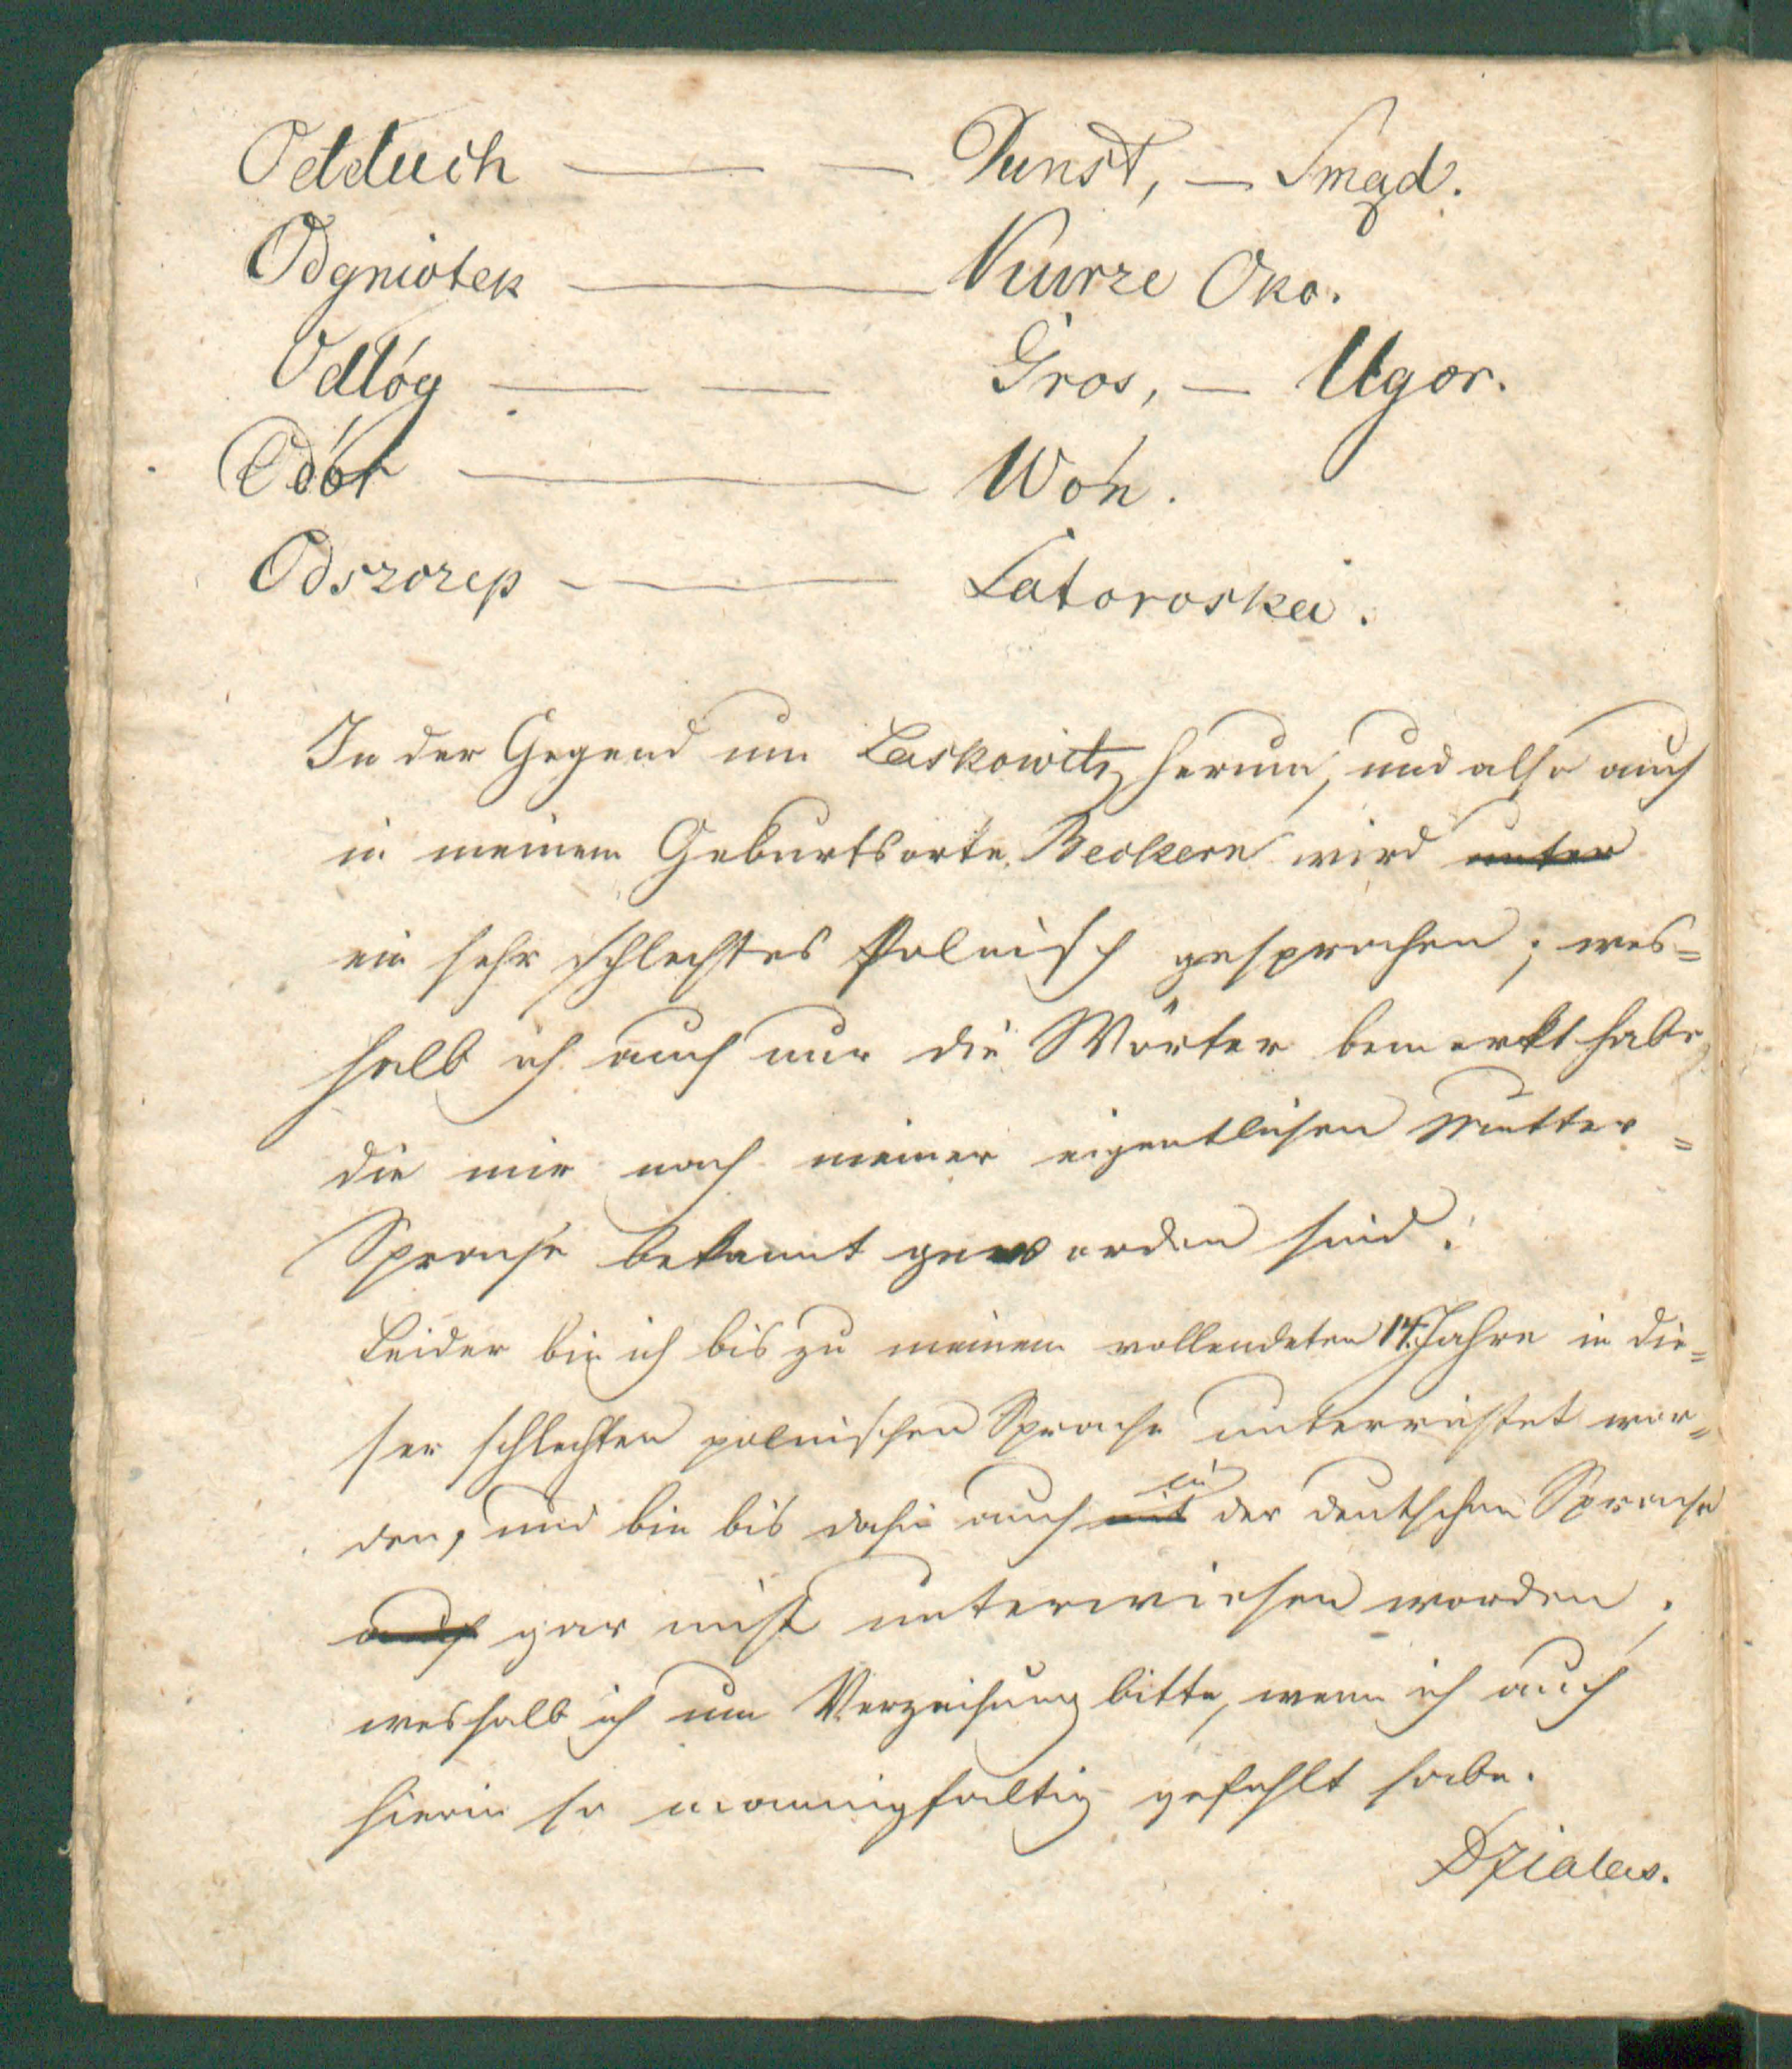 Odduch — — Dunst, — Smąd.
Odgniotek — Kurze Oko.
Odłóg — — Gros, — Ugor.
Odór — Woń.
Odszczep — Latoroska.
In der Gegend um Laskowitz herum, und also auch
in meinem Geburtsorte Beckern wird unter
ein sehr schlechtes Polnisch gesprochen; wes=
halb ich auch nur die Wörter bemerkt habe,
die mir nach meiner eigentlichen Mutter=
Sprache bekannt geworden sind.
Leider bin ich bis zu meinem vollendeten 14. Jahre in die=
ser schlechten polnischen Sprache unterrichtet wor=
den, und bin bis dahin auch mit in der deutschen Sprache
auch gar nicht unterwiesen worden;
weshalb ich um Verzeihung bitte, wenn ich auch
hierin so mannigfaltig gefehlt habe.
Dzialas.